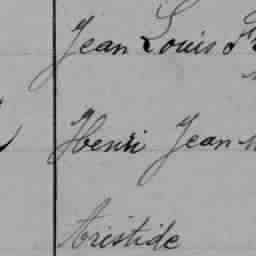 Jean Louis
Henri Jean
Aristide